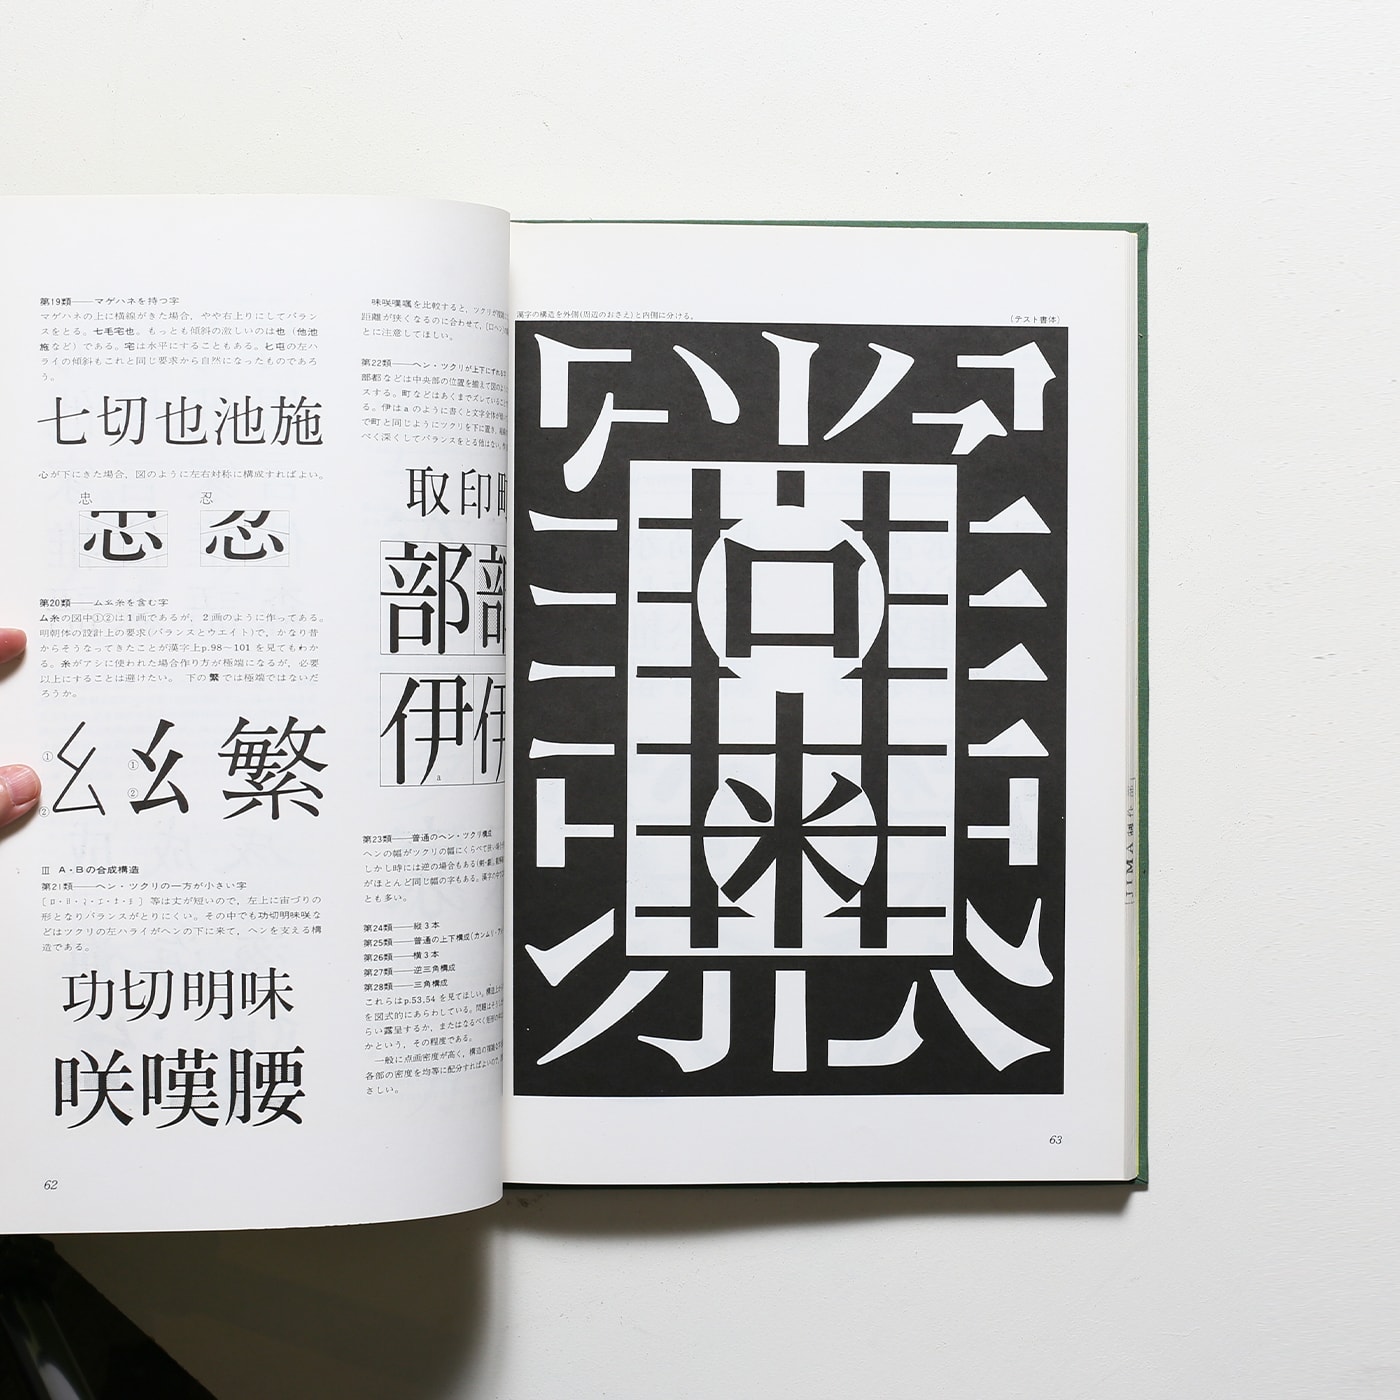 第19類——マゲハネを持つ字
マゲハネの上に横線がきた場合，やや右上りにしてバラン
スをとる。七毛宅也。もっとも傾斜の激しいのは也（他池
施など）である。宅は水平にすることもある。匕屯の左ハ
ライの傾斜もこれと同じ要求から自然になったものであろ
う。
七切也池施
心が下にきた場合，図のように左右対称に構成すればよい。
忠 忍
忠 忍
第20類——ム幺糸を含む字
ム糸の図中①②は1画であるが，2画のように作ってある。
明朝体の設計上の要求(バランスとウエイト)で，かなり昔
からそうなってきたことが漢字上p.98〜101を見てもわか
る。糸がアシに使われた場合作り方が極端になるが，必要
以上にすることは避けたい。 下の繁では極端ではないだ
ろうか。
① ② 幺 ① ② 幺 繁
Ⅲ A・Bの合成構造
第21類——ヘン・ツクリの一方が小さい字
等は丈が短いので，左上に宙づりの
形となりバランスがとりにくい。その中でも功切明味咲な
どはツクリの左ハライがヘンの下に来て，ヘンを支える構
造である。
功切明味
咲嘆腰
62
味咲嘆嘱を比較すると，ツクリが
距離が狭くなるのに合わせて，[口ヘン
とに注意してほしい。
第22類——ヘン・ツクリが上下にずれる
部都などは中央部の位置を揃えて図の
スする。町などはあくまでズレている
る。伊はaのように書くと文字全体が
で町と同じようにツクリを下に置き，
べく深くしてバランスをとる他はない。
取印町
部部
伊伊
a
第23類——普通のヘン・ツクリ構成
ヘンの幅がツクリの幅にくらべて
しかし時には逆の場合もある
がほとんど同じ幅の字もある。漢字の
とも多い。
第24類——縦3本
第25類——普通の上下構成(カンムリ・ア
第26類——横3本
第27類——逆三角構成
第28類——三角構成
これらはp.53,54を見てほしい。構造上
を図式的にあらわしている。問題は
らい露呈するか，またはなるべく
かという，その程度である。
一般に点画密度が高く，構造の複雑な
各部の密度を均等に配分すればよいので，
さしい。
漢字の構造を外側(周辺のおさえ)と内側に分ける。
（テスト書体）
63